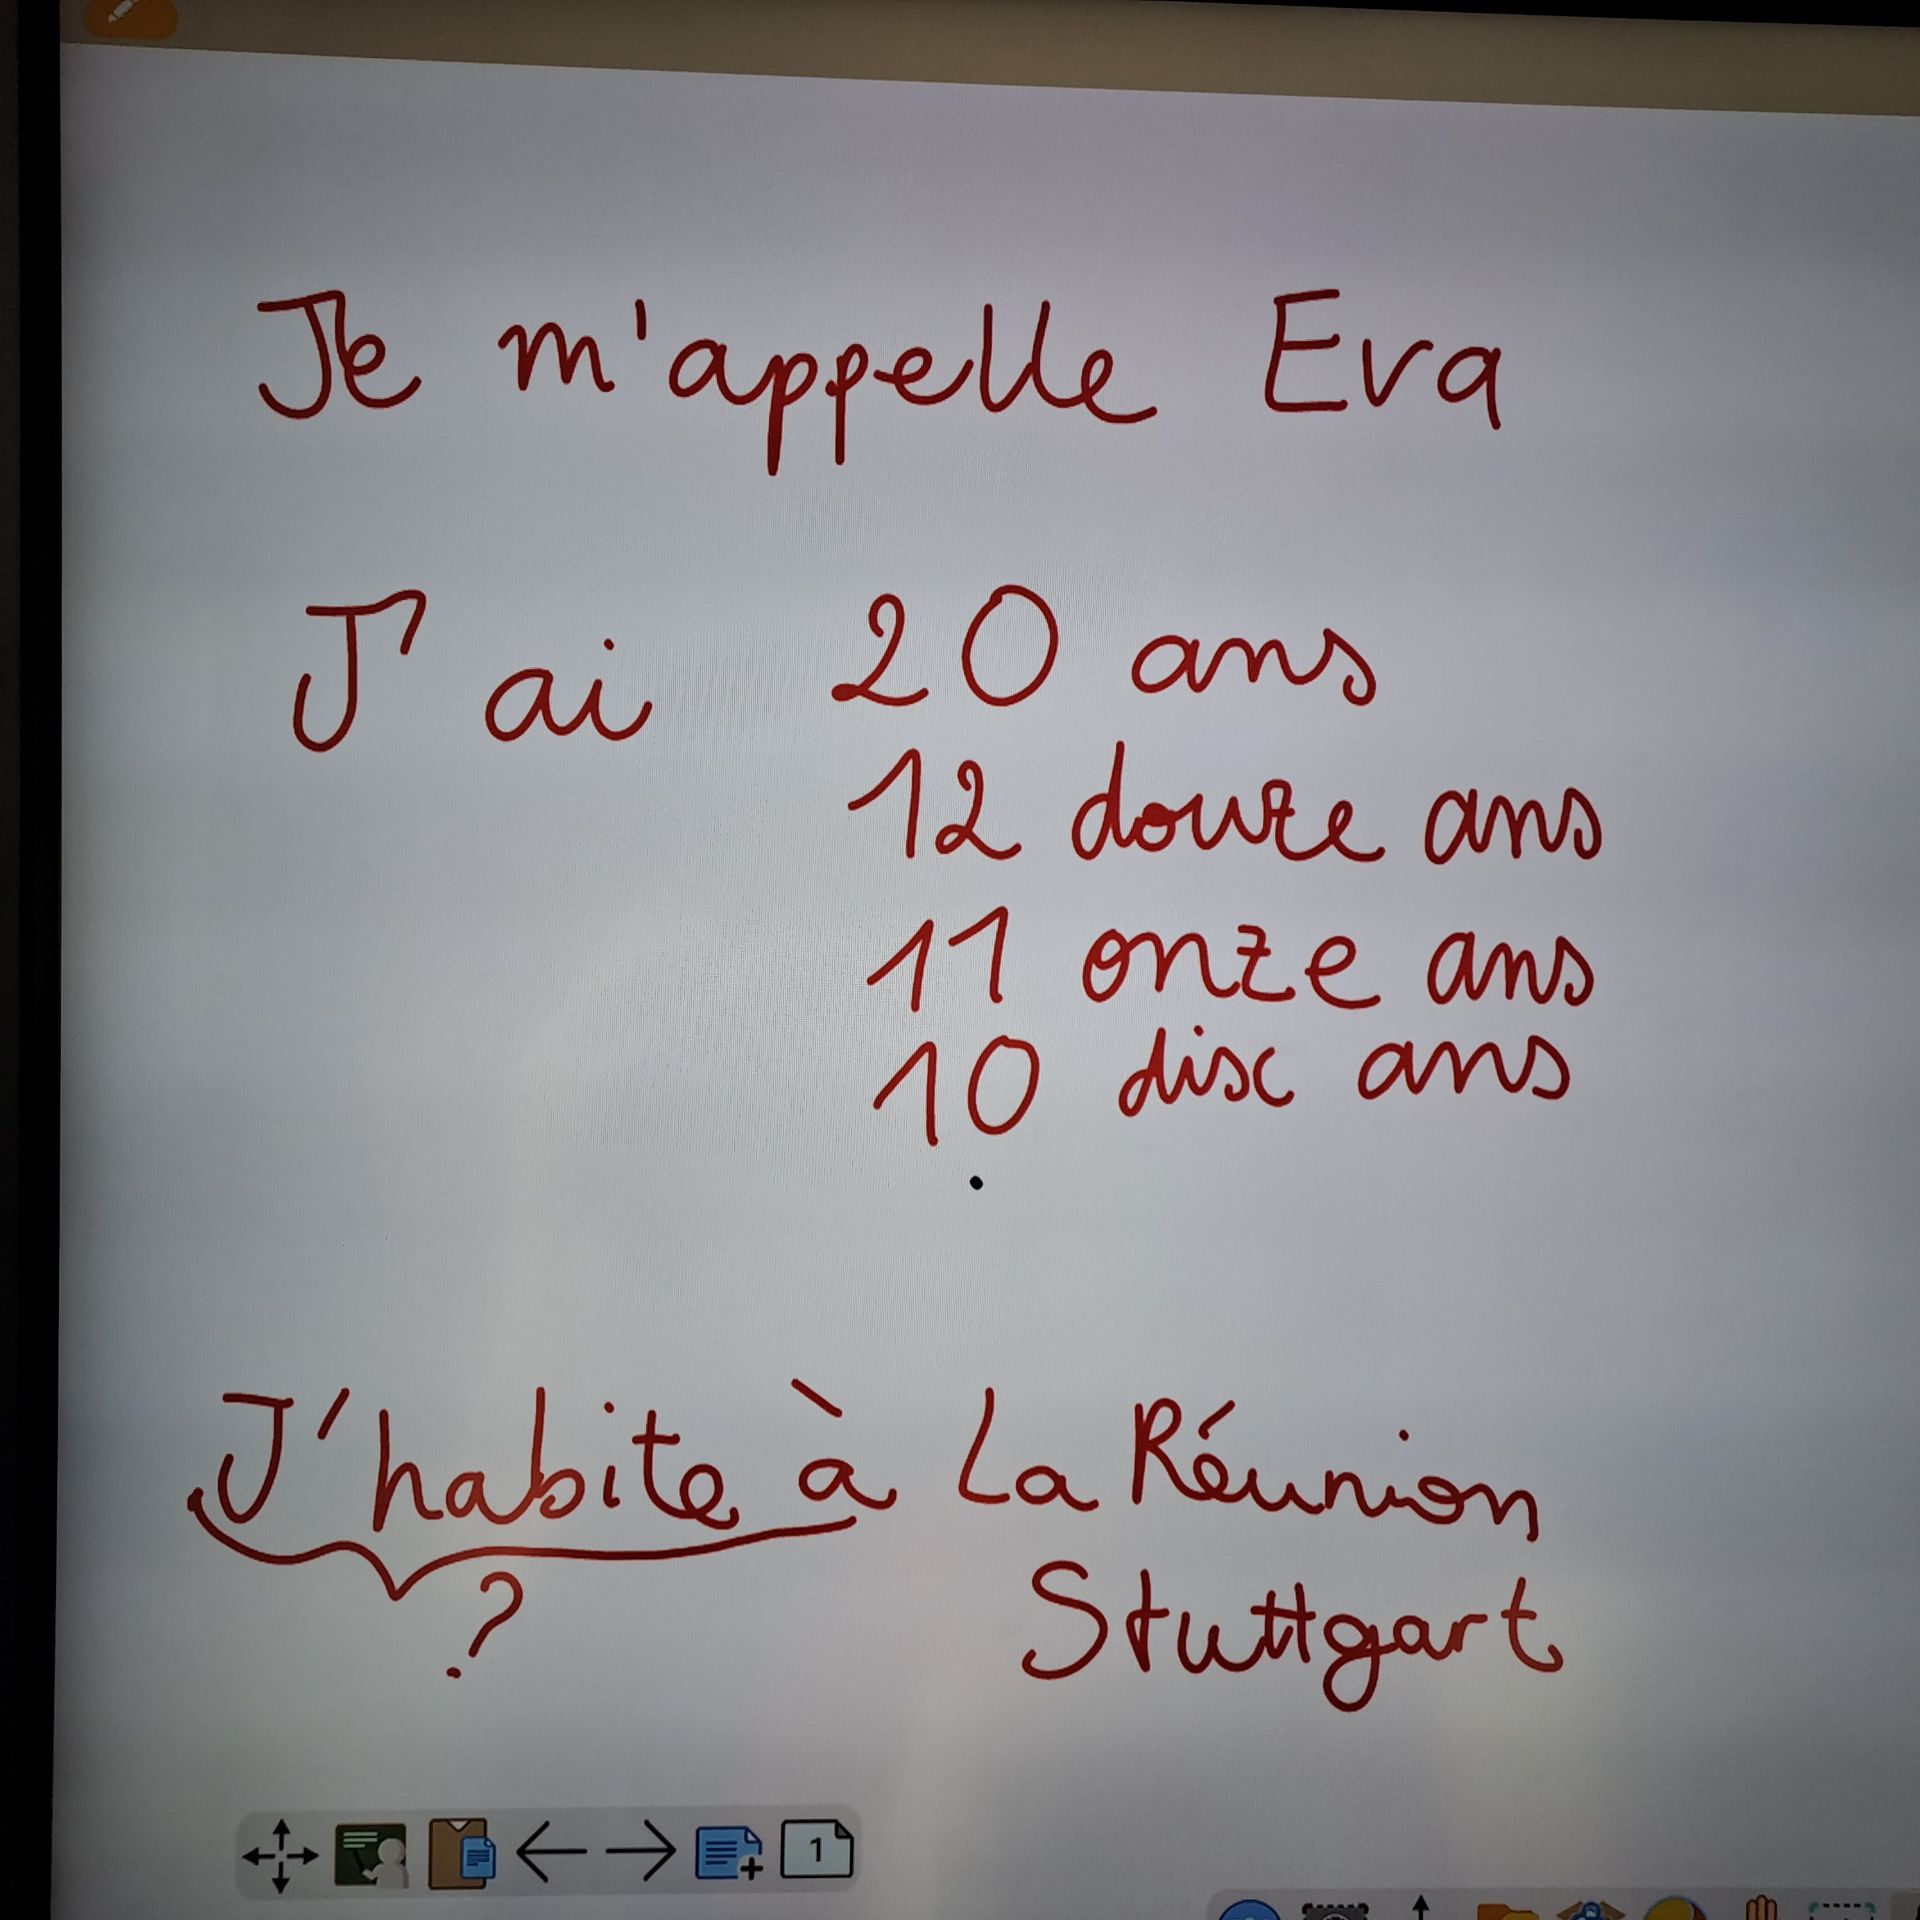 Je m'appelle Eva
J'ai 20 ans
12 douze ans
11 onze ans
10 disc ans
J'habite à La Réunion
? Stuttgart
1